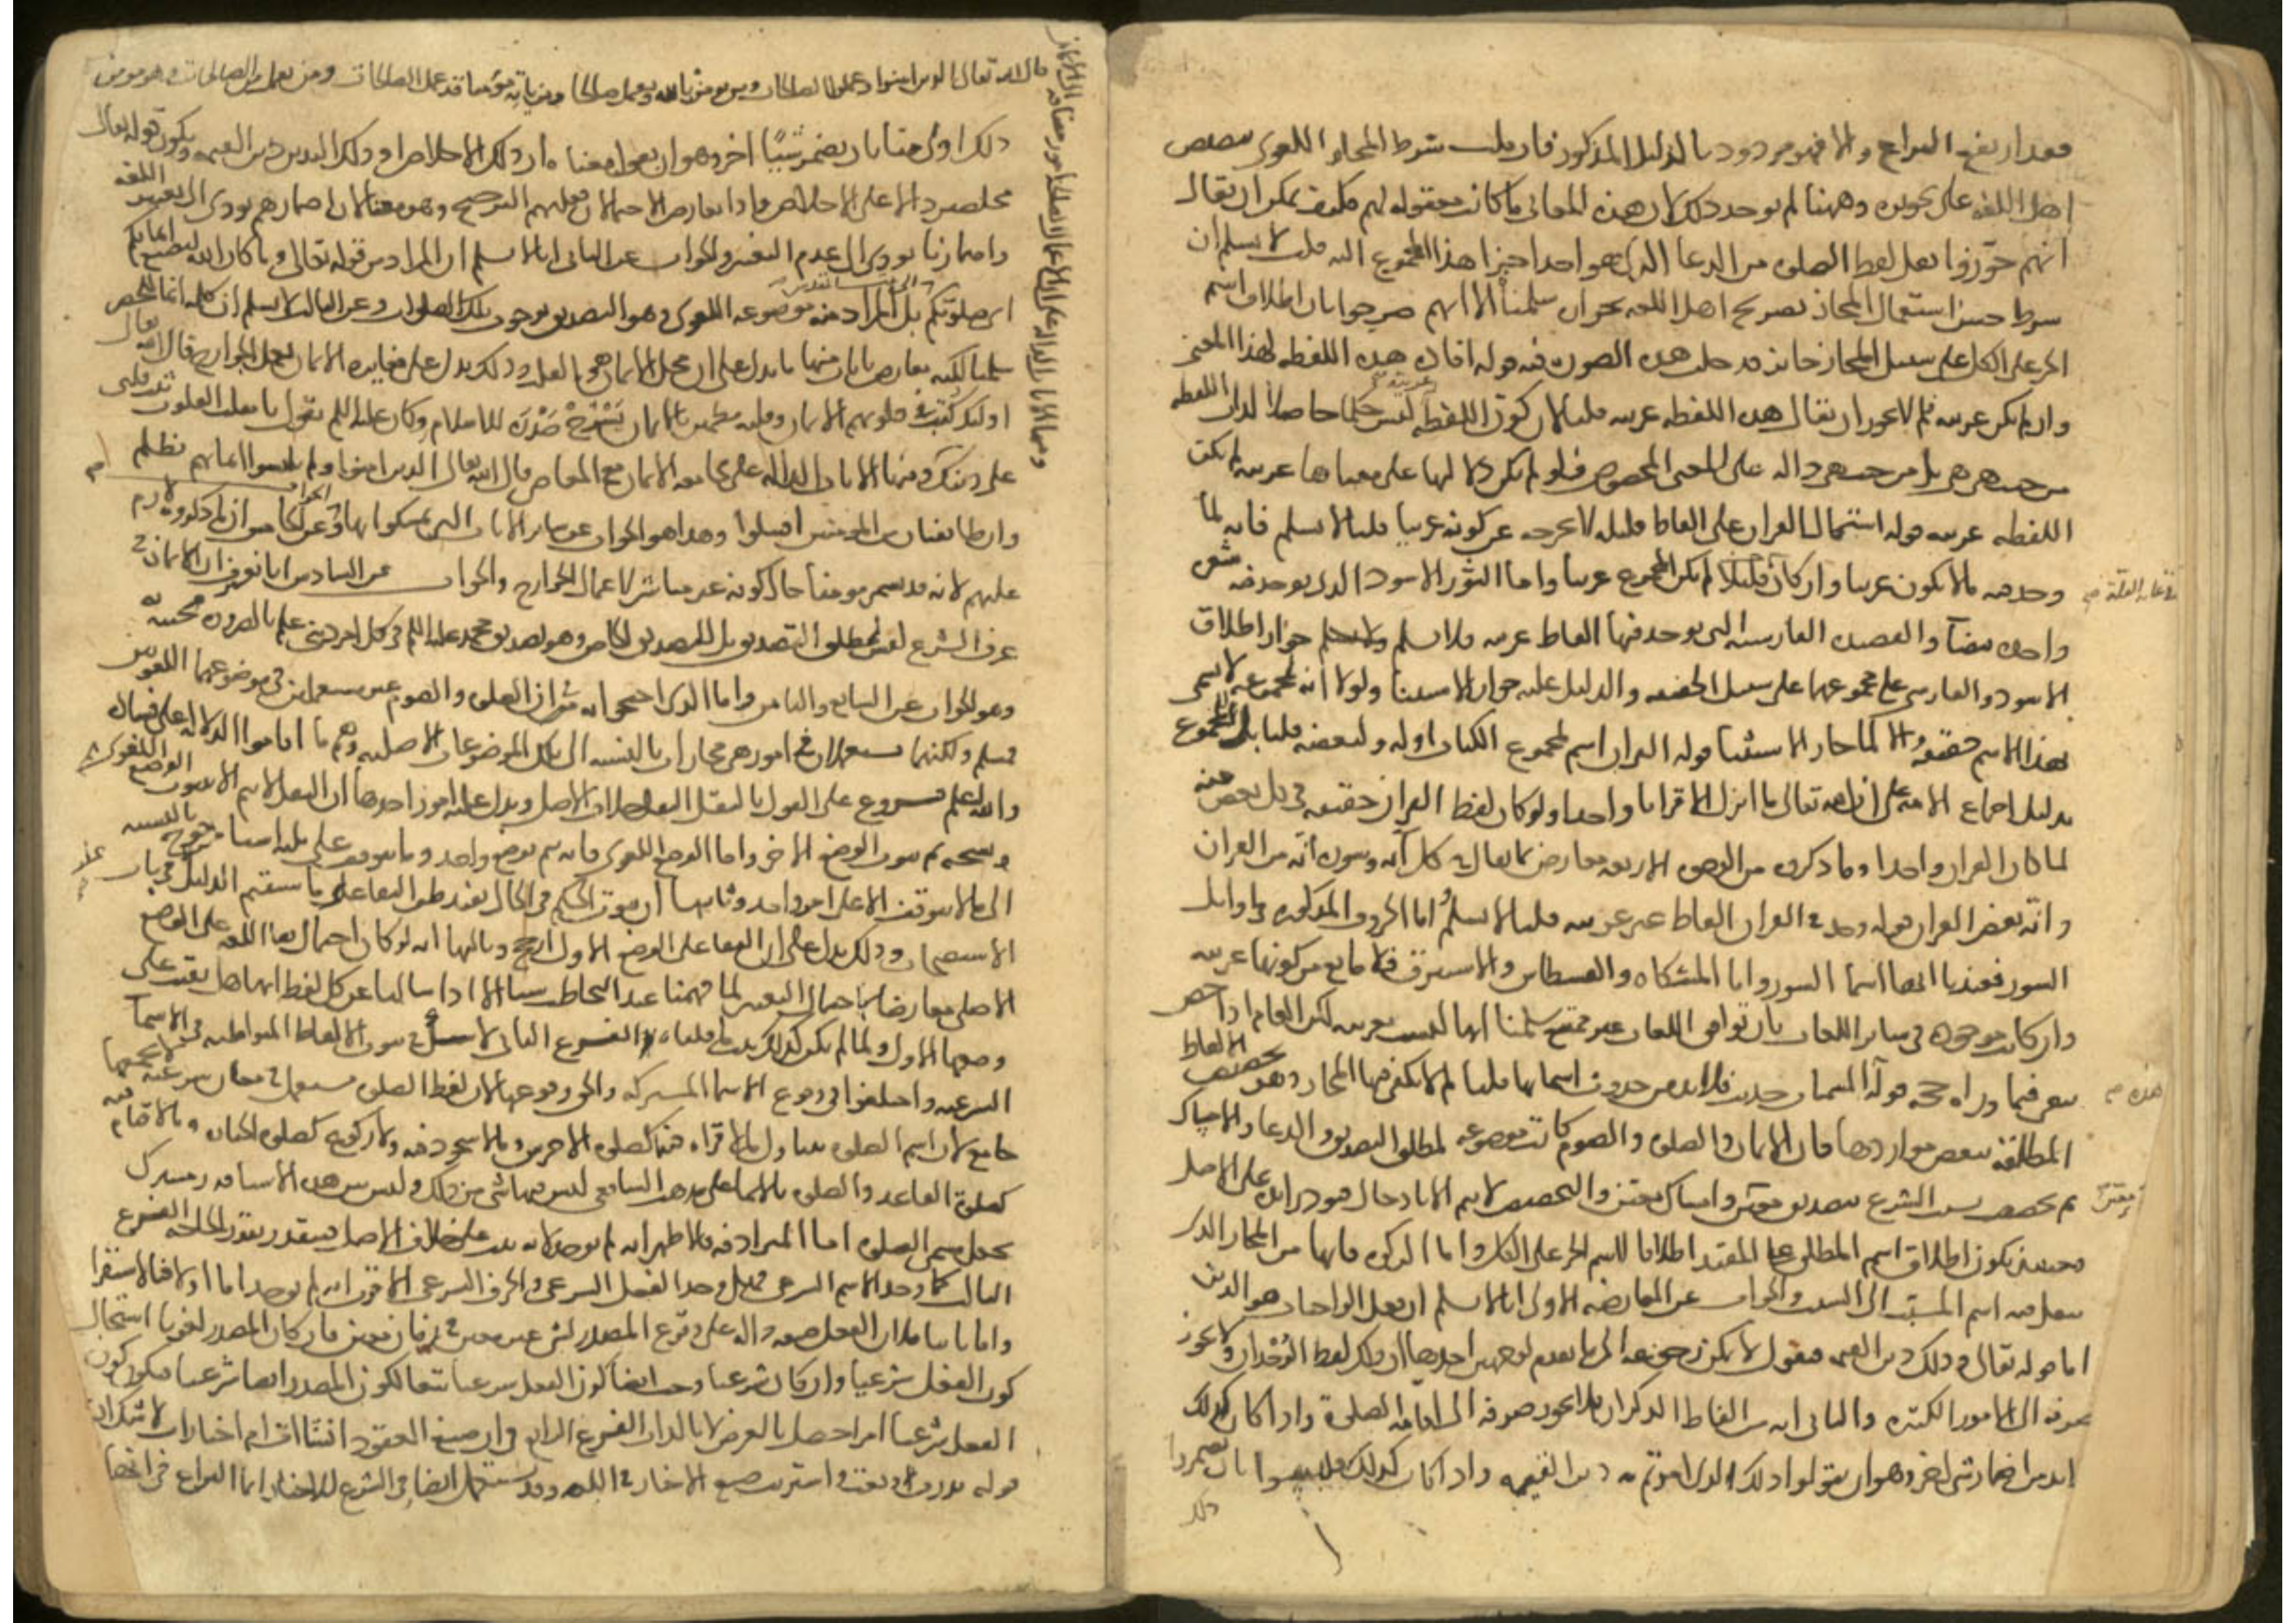 فقد ارتفع النزاع والا فهو مردود بالدليل المذكور فان قلت شرط المجاز اللغوى تنصيص
اهل اللغه على تجويزه وههنا لم يوجد ذلك لان هذه المعانى ما كانت معقوله لهم قلت يمكن ان يقال
انهم جوزوا نقل لفظ الصلوه من الدعا الذى هو احد اجزا هذا المجموع اليه قلت لا نسلم ان
شرط حسن استعمال المجاز تصريح اهل اللغه بجوازه سلمنا الا انهم صرحوا بان اطلاق اسم
الجز على الكل على سبيل المجاز جائز فدخلت هذه الصوره فيه قوله افاده هذه اللفظه لهذا المعنى
وان لم يكن عربيه فلم لا يجوز ان يقال هذه اللفظه عربيه قلنا لان كون اللفظه عربيه ليس حكما حاصلا لذات اللفظه
من حيث هى هى بل من حيث هى داله على المعنى المخصوص فلو لم يكن دلالتها على معناها عربيه لم تكن
اللفظه عربيه قوله اشتمال القران على الفاظ قليله لا يخرجه عن كونه عربيا قلنا لا نسلم فانه لما
وجد فيه ما لا يكون عربيا وان كان قليلا لم يكن المجموع عربيا واما الثور الاسود الذى يوجد فيه شعره
واحده بيضآ والقصيده الفارسيه التى يوجد فيها الفاظ عربيه فلا نسلم جواز اطلاق
الاسود والفارسى على مجموعها على سبيل الحقيقه والدليل عليه جواز الاستثنا ولولا انه لمجموعه لا يسمى
بهذا الاسم حقيقه والا لما جاز الاستثنا قوله القران اسم لمجموع الكتاب او له ولبعضه قلنا بل للمجموع
بدليل اجماع الامه على ان الله تعالى ما انزل الا قرانا واحدا ولو كان لفظ القران حقيقه فى كل بعض منه
لما كان القران واحدا وما ذكروه من الوجوه الاربعه معارض بما يقال فى كل آيه وسوره انه من القران
وانه بعض القران قوله وجد فى القران الفاظ غير عربيه قلنا لا نسلم اما الحروف المذكوره فى اوايل
السور فعندنا انها اسما السور واما المشكاه والقسطاس والاستبرق فلا مانع من كونها عربيه
وان كانت موجوده فى ساير اللغات فان توافق اللغات غير ممتنع سلمنا انها ليست بعربيه لكن العام اذا خص
يبقى فيما وراه حجه قوله المسميات حدثت فلا بد من حدوث اسمائها قلنا لم لا يكفى فيها المجاز وهو تخصيص الالفاظ
المطلقه ببعض مواردها فان الايمان والصلوه والصوم كانت موضوعه لمطلق التصديق والدعا والامساك
ثم تخصصت بسبب الشرع بتصديق معين ودعا معين وامساك معين والتخصيص لا يتم الا بادخال قيود زايده على الاصل
فحينئذ يكون اطلاق اسم المطلق على المقيد اطلاقا لاسم الجز على الكل واما الزكوه فانها من المجاز الذى
ينقل فيه اسم المسبب الى السبب والجواب عن المعارضه الاولى انا لا نسلم ان فعل الواجبات هو الدين
اما قوله تعالى وذلك دين القيمه فنقول لا يمكن رجوعه الى ما تقدم لوجهين احدها ان ذلك لفظ الوحدان فلا يجوز
صرفه الى الامور الكثيره والثانى انه من الفاظ الذكران فلا يجوز صرفه الى اقامه الصلوة واذا كان كذلك
لابد من اضمار شى اخر وهو ان يقولوا ذلك الذى امرتم به دين القيمه واذا كان كذلك فليسوا بان يضمروا
ذلك
قال الله تعالى الذين امنوا وعملوا الصالحات ومن يومن بالله ويعمل صالحا ومن ياته مؤمنا قد عمل الصالحات ومن يعمل من الصالحات وهو مومن
ومنها الايات الداله على ان الاعمال الصالحه امور مضافه الى الايمان
ذلك اولى منا بان نضمر شيئا اخر وهو ان يقولوا معناه ان ذلك الاخلاص او ذلك التدين دين القيمه ويكون قوله تعالى
مخلصين دالا على الاخلاص واذا تعارض الاحتمالان فعليهم الترجيح وهو معنا لان اضمارهم يودى الى تغيير اللغه
واضمارنا يودى الى عدم التغيير والجواب عن الثانى انا لا نسلم ان المراد من قوله تعالى وما كان الله ليضيع ايمانكم
اى صلوتكم بل المراد منه موضوعه اللغوى وهو التصديق بوجوب تلك الصلوات وعن الثالث لا نسلم ان كلمه انما للحصر
سلمنا لكنه معارض بايات منها ما يدل على ان محل الايمان هو القلب وذلك يدل على مغايره الايمان لعمل الجوارح قال الله تعالى
اولئك كتب فى قلوبهم الايمان وقلبه مطمين بالايمان يَشْرَحْ صَدْرَه للاسلام وكان عليه السلم يقول يا مقلب القلوب ثبت قلبى
على دينك ومنها الايات الداله على مجامعه الايمان مع المعاصى قال الله تعالى الذين امنوا ولم يلبسوا ايمانهم بظلم
وان طايفتان من المومنين اقتتلوا وهذا هو الجواب عن ساير الايات التى تمسكوا بها وعن الخامس ان ما ذكروه لازم
عليهم لانه قد يسمى مومنا حال كونه غير مباشر لاعمال الجوارح والجواب عن السادس انا نعترف ان الايمان فى
عرف الشرع ليس لمطلق التصديق بل للتصديق الخاص وهو تصديق محمد عليه السلم فى كل امر دينى علم بالضروره مجيئه به
وهو الجواب عن السابع والثامن واما الذى احتجوا به من ان الصلوه والصوم غير مستعملين فى موضوعيهما اللغويين
فمسلم ولكنهما مستعملان فى امور هى مجازات بالنسبه الى تلك الموضوعات الاصليه وهم ما اقاموا الدلاله على فساده
والله اعلم فروع على القول بالنقل النقل خلاف الاصل ويدل عليه امور احدها ان النقل لا يتم الا بثبوت الوضع اللغوى
ونسخه ثم ثبوت الوضع الاخر واما الوضع اللغوى فانه يتم بوضع واحد وما يتوقف على ثلثه اشيا مرجوح بالنسبه
الى ما لا يتوقف الا على امر واحد وثانيها ان ثبوت الحكم فى الحال يفيد ظن البقا على ما سنقيم الدليل فى باب
الاستصحاب وذلك يدل على ان البقا على الوضع الاول ارجح وثالثها انه لو كان احتمال بقا اللغه على الوضع
الاصلى معارضا باحتمال التغيير لما فهمنا عند التخاطب شيا الا اذا سالنا عن كل لفظ انها هل بقيت على
وضعها الاول ولما لم يكن كذلك ثبت ما قلناه الفرع الثانى لا شك فى ثبوت الالفاظ المتواطيه فى الاسما
الشرعيه واختلفوا فى وقوع الاسما المشتركه والحق وقوعها لان لفظ الصلوه مستعمل فى معان شرعيه لا يجمعها
جامع لان اسم الصلوه يتناول ما لا قراه فيه كصلوه الاخرس وما لا سجود فيه ولا ركوع كصلوه الجنازه وما لا قيام فيه
كصلوة القاعد والصلوه بالايما على مذهب الشافعى ليس فيها شى من ذلك وليس بين هذه الاشيا قدر مشترك
يجعل مسمى الصلوه اما المترادفه فالاظهر انه لم يوجد لانه ثبت على خلاف الاصل فيتقدر بقدر الحاجه الفرع
الثالث كما وجد الاسم الشرعى فهل وجد الفعل الشرعى والحرف الشرعى الاقرب انه لم يوجد اما اولا فبالاستقرا
واما ثانيا فلان الفعل صيغه داله على وقوع المصدر لشى غير معين فى زمان معين فان كان المصدر لغويا استحال
كون الفعل شرعيا وان كان شرعيا وجب ايضا كون الفعل شرعيا تبعا لكون المصدر ايضا شرعيا فيكون كون
الفعل شرعيا امرا حصل بالعرض لا بالذات الفرع الرابع فى ان صيغ العقود انشاات ام اخبارات لا شك ان
قوله نذرت وبعت واشتريت صيغ الاخبار فى اللغه وقد تستعمل ايضا فى الشرع للاخبار انما النزاع فى انها